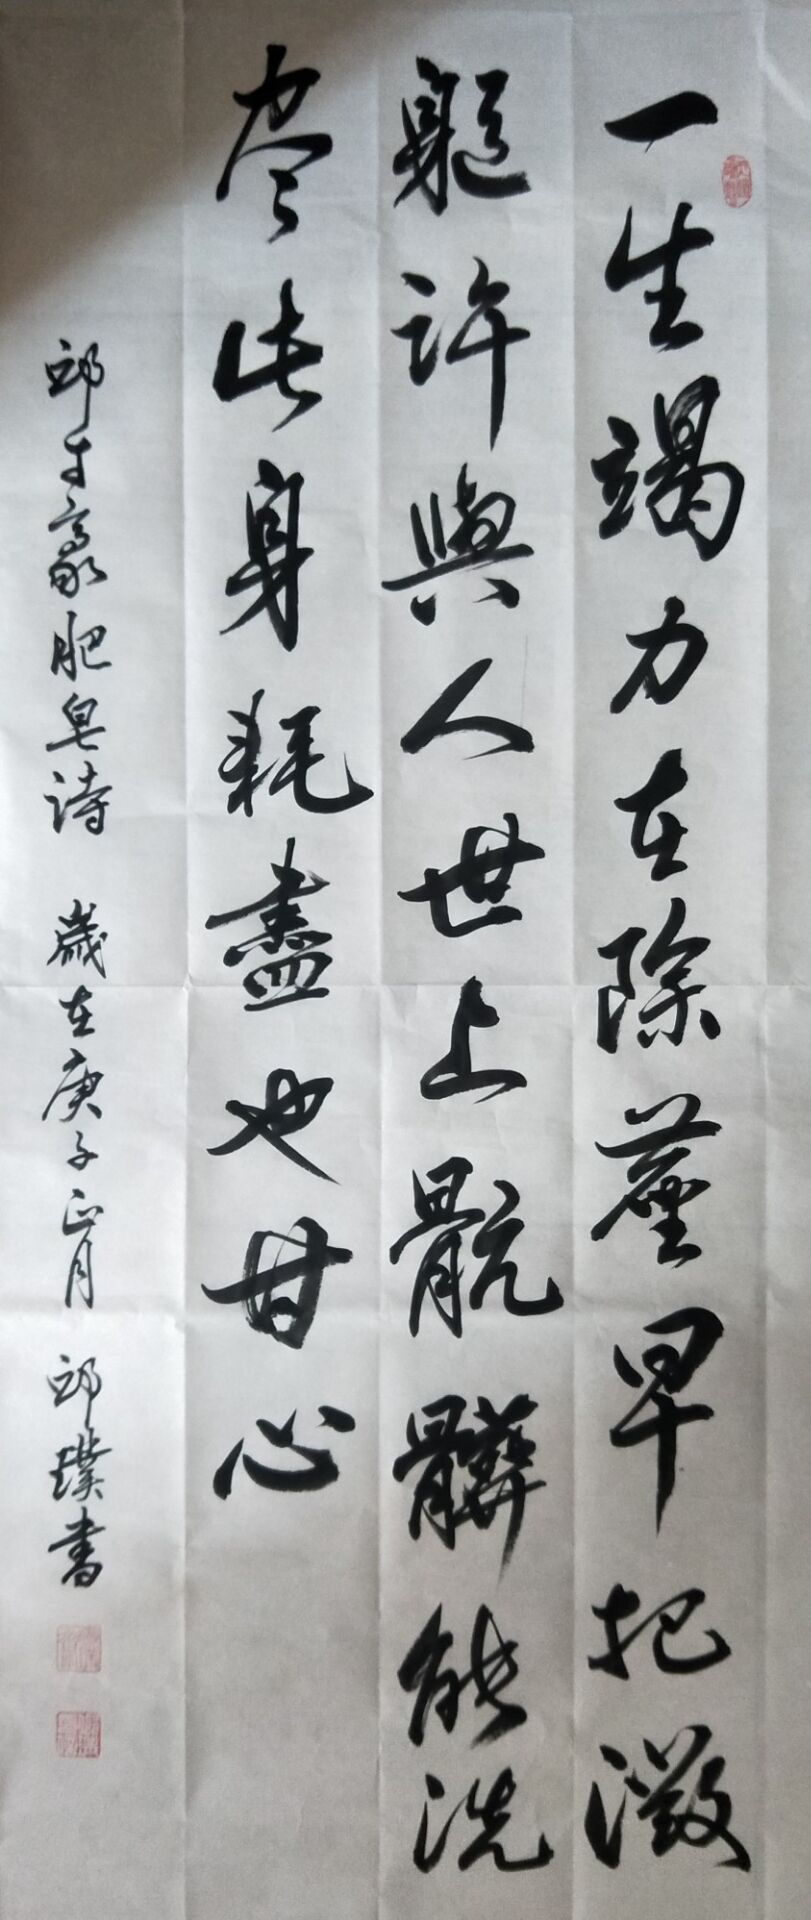 一生竭力在除塵早把微
軀許與人世上骯髒能洗
尽此身耗盡也甘心
邱才豪肥皂詩 歲在庚子正月 邱璞書